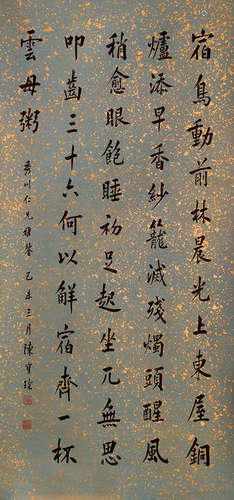 宿鳥動前林晨光上東屋銅
爐添早香紗籠滅殘燭頭醒風
稍愈眼飽睡初足起坐兀無思
叩齒三十六何以解宿齋一杯
雲母粥
秀川仁兄雅鑒 乙未三月 陳寶琛